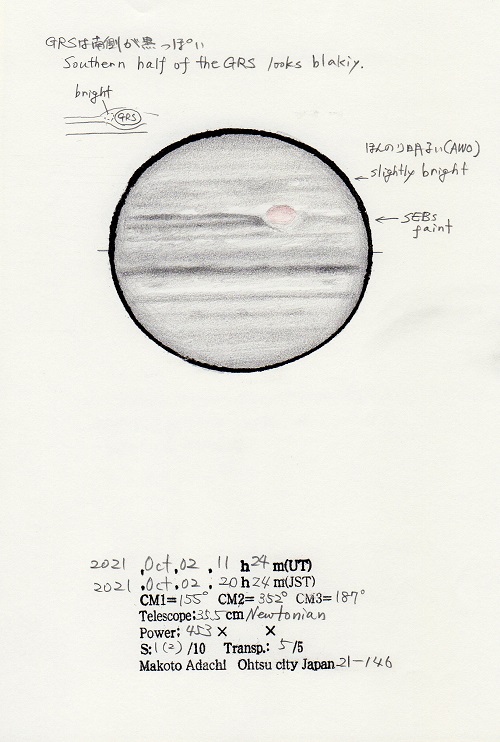 GRSは南側が黒っぽい
Southern half of the GRS looks blakiy.
bright
GRS
ほんのり明るい(AWO)
slightly bright
SEBs
faint
2021 .Oct.02 .11 h24 m(UT)
2021 .Oct.02 .20h24m(JST)
CM1=155° CM2=352° CM3=187°
Telescope:35.5cm Newtonian
Power; 453× ×
S:1(2)/10 Transp.: 5/5
Makoto Adachi Ohtsu city Japan 21-146